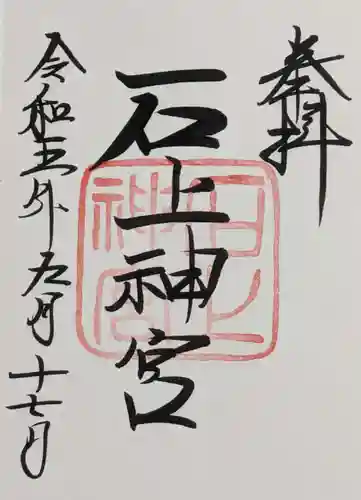 奉拝
石上神宮
石上
神宮
令和五年五月十七日